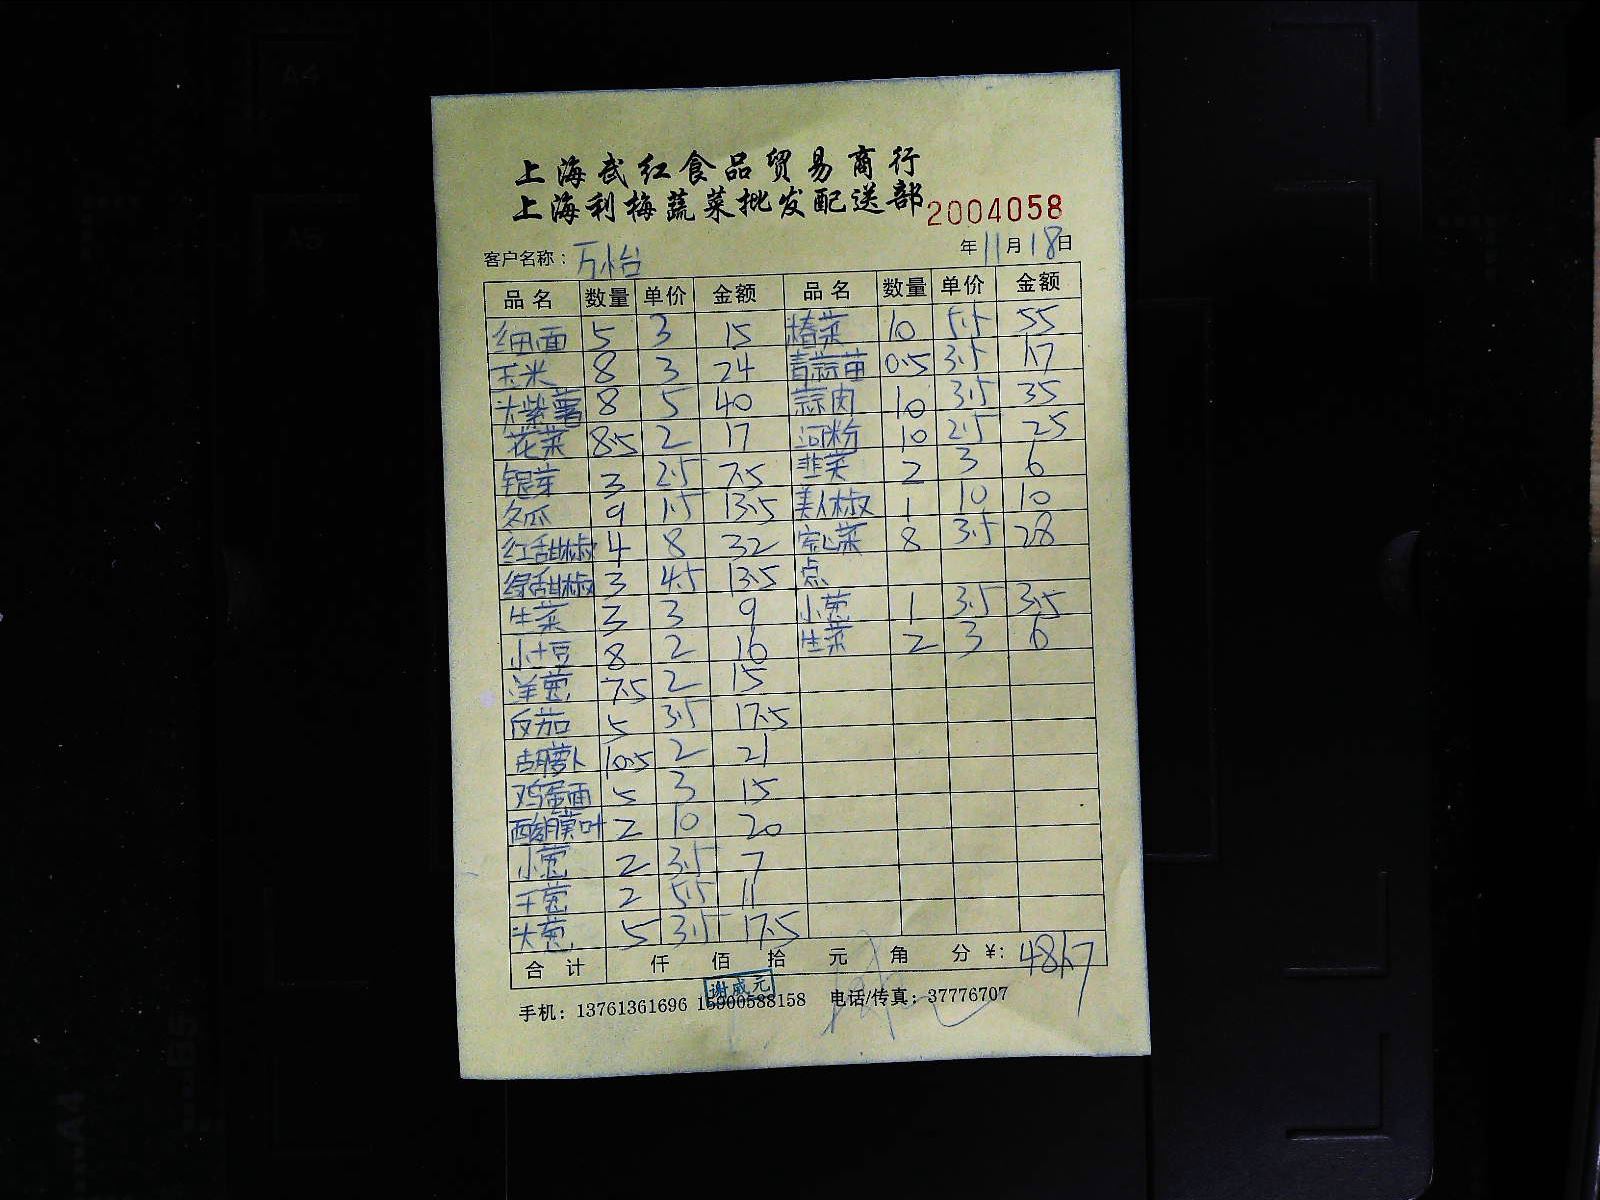 上海武红食品贸易商行
上海利梅蔬菜批发配送部 2004058
客户名称：万怡 年11月18日
品名 数量 单价 金额 品名 数量 单价 金额
细面 5 3 15 椿菜 10 5.5 55
玉米 8 3 24 青蒜苗 0.5 3.5 1.7
大紫薯 8 5 40 蒜肉 10 3.5 35
花菜 8.5 2 17 河粉 10 2.5 25
银芽 3 2.5 7.5 韭菜 2 3 6
冬瓜 9 1.5 13.5 美人椒 1 10 10
红甜椒 4 8 32 空心菜 8 3.5 28
绿甜椒 3 4.5 13.5 点
生菜 3 3 9 小葱 1 3.5 3.5
小土豆 8 2 16 生菜 2 3 6
洋葱 7.5 2 15
反茄 5 3.5 17.5
胡萝卜 10.5 2 21
鸡蛋面 5 3 15
叶 2 10 20
小葱 2 3.5 7
干葱 2 5.5 11
大葱 5 3.5 17.5
合计 仟 佰 拾 元 角 分 ¥: 481.7
谢成元
手机：13761361696 15900588158 电话/传真：37776707
A4
A5
A4